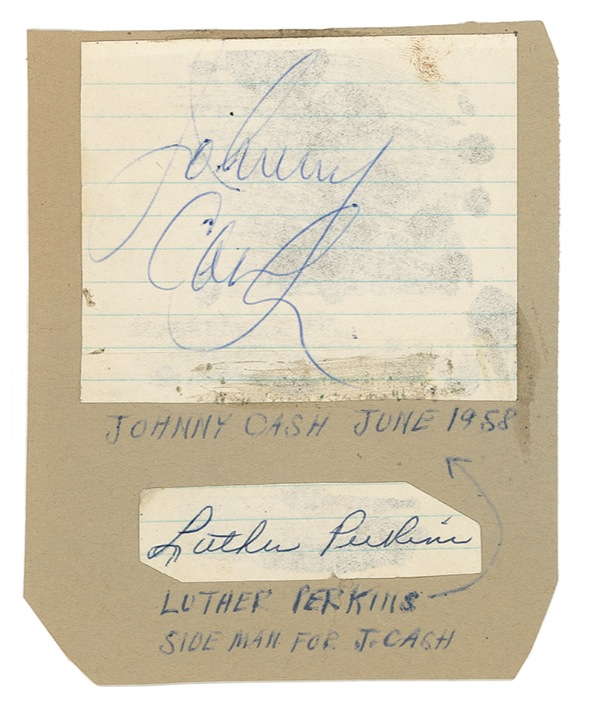 Johnny
Cash
JOHNNY CASH JUNE 1958
Luther Perkins
LUTHER PERKINS
SIDE MAN FOR J. CASH